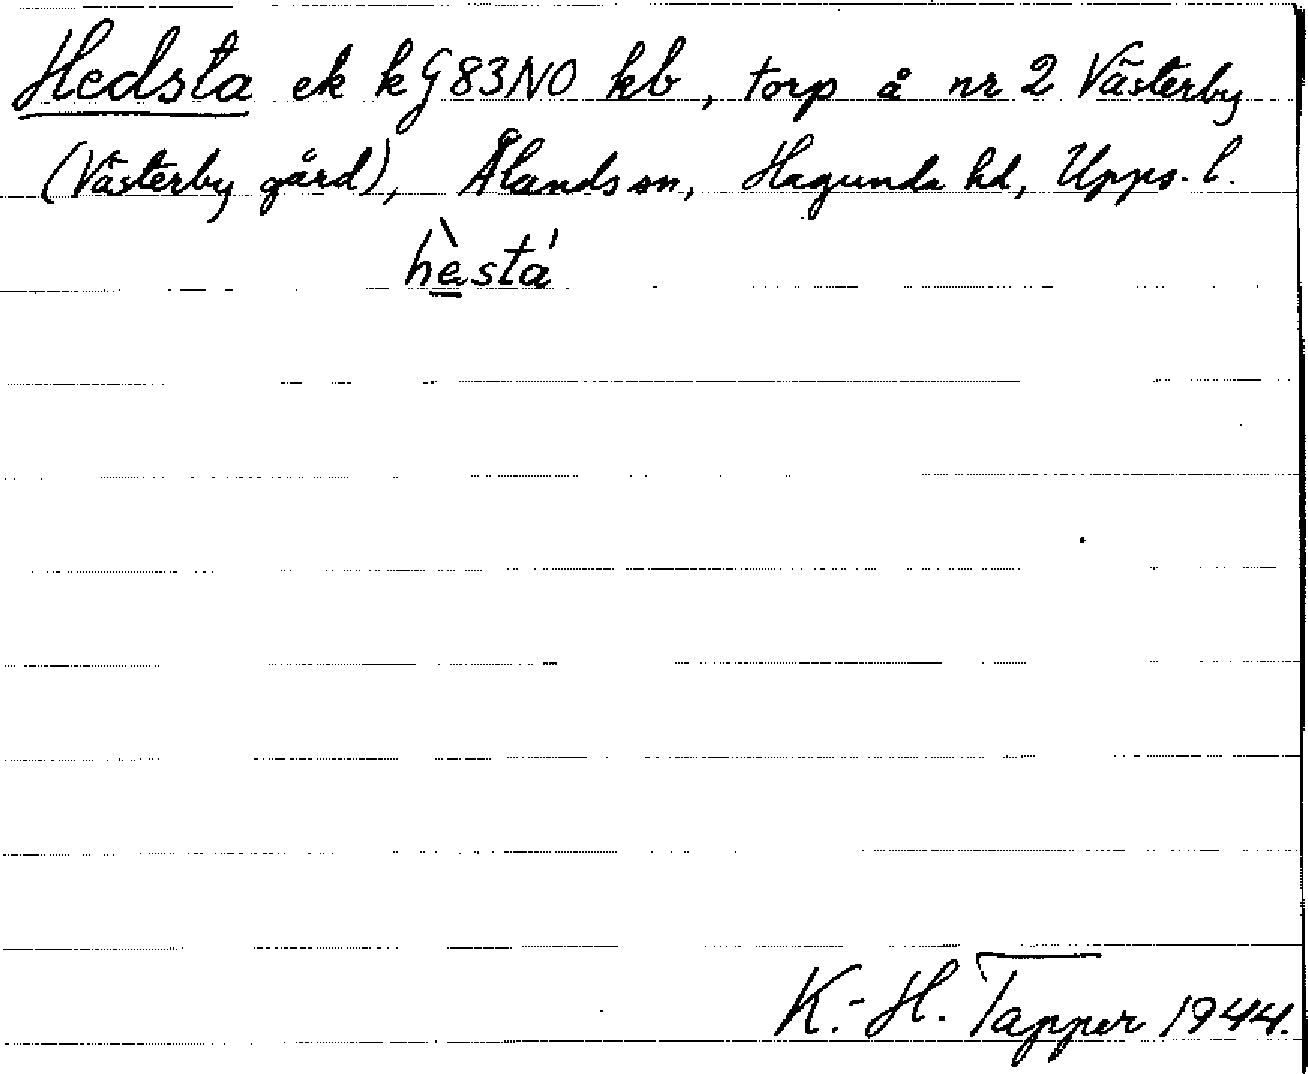 Hedsta ek k G83NO kb, torp å nr 2 Västerby
(Västerby gård), Ålands sn, Hagunda hd, Upps. l.
hèstá
K.-H. Tapper 1944.